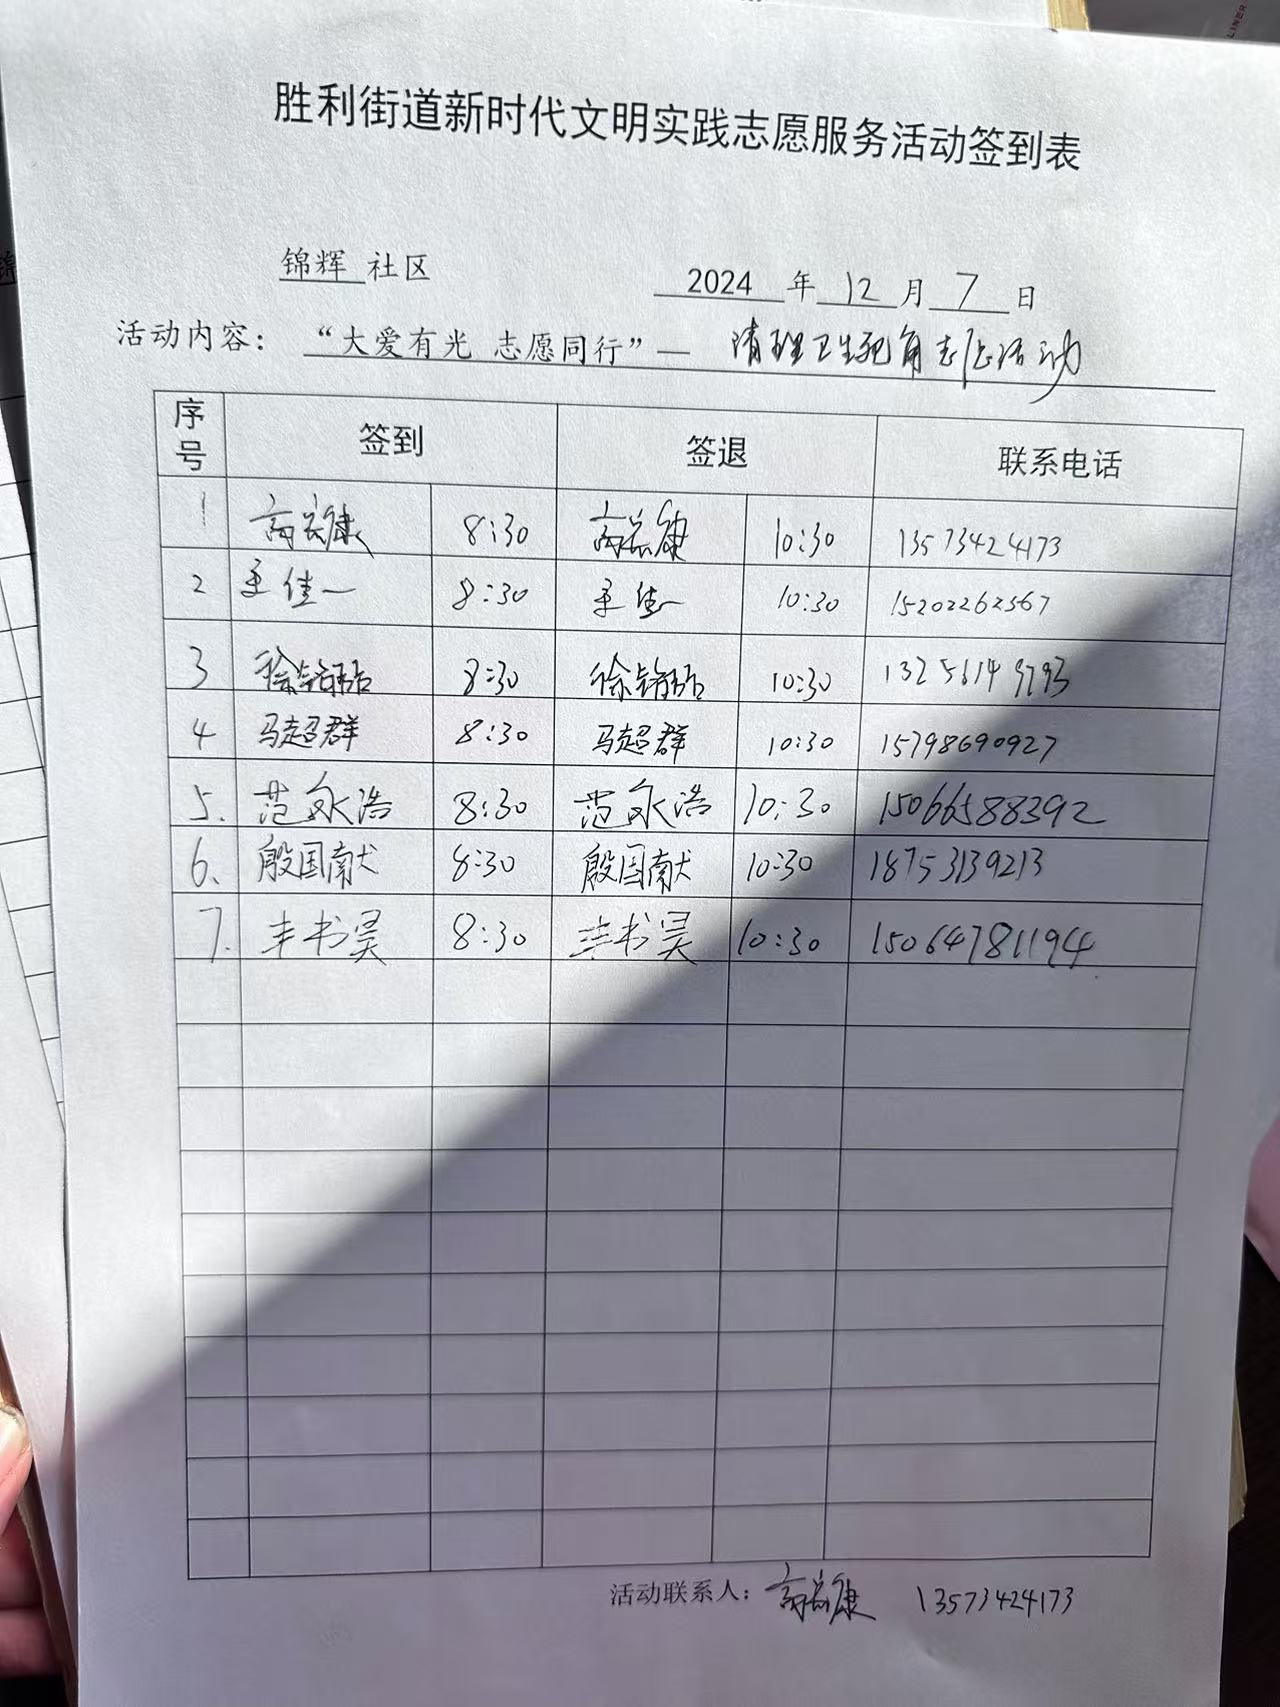 胜利街道新时代文明实践志愿服务活动签到表
锦辉 社区 2024 年 12 月 7 日
活动内容：“大爱有光 志愿同行”— 清理卫生死角志愿活动
序号 签到 签退 联系电话
1 高宏健 8:30 高宏健 10:30 13573424173
2 王佳一 8:30 王佳一 10:30 15202262367
3 徐铭喆 8:30 徐铭喆 10:30 13256149793
4 马超群 8:30 马超群 10:30 15798690927
5. 范永浩 8:30 范永浩 10:30 15066588392
6、 殷国献 8:30 殷国献 10:30 18753139213
7. 丰书昊 8:30 丰书昊 10:30 15064781194
活动联系人： 13573424173